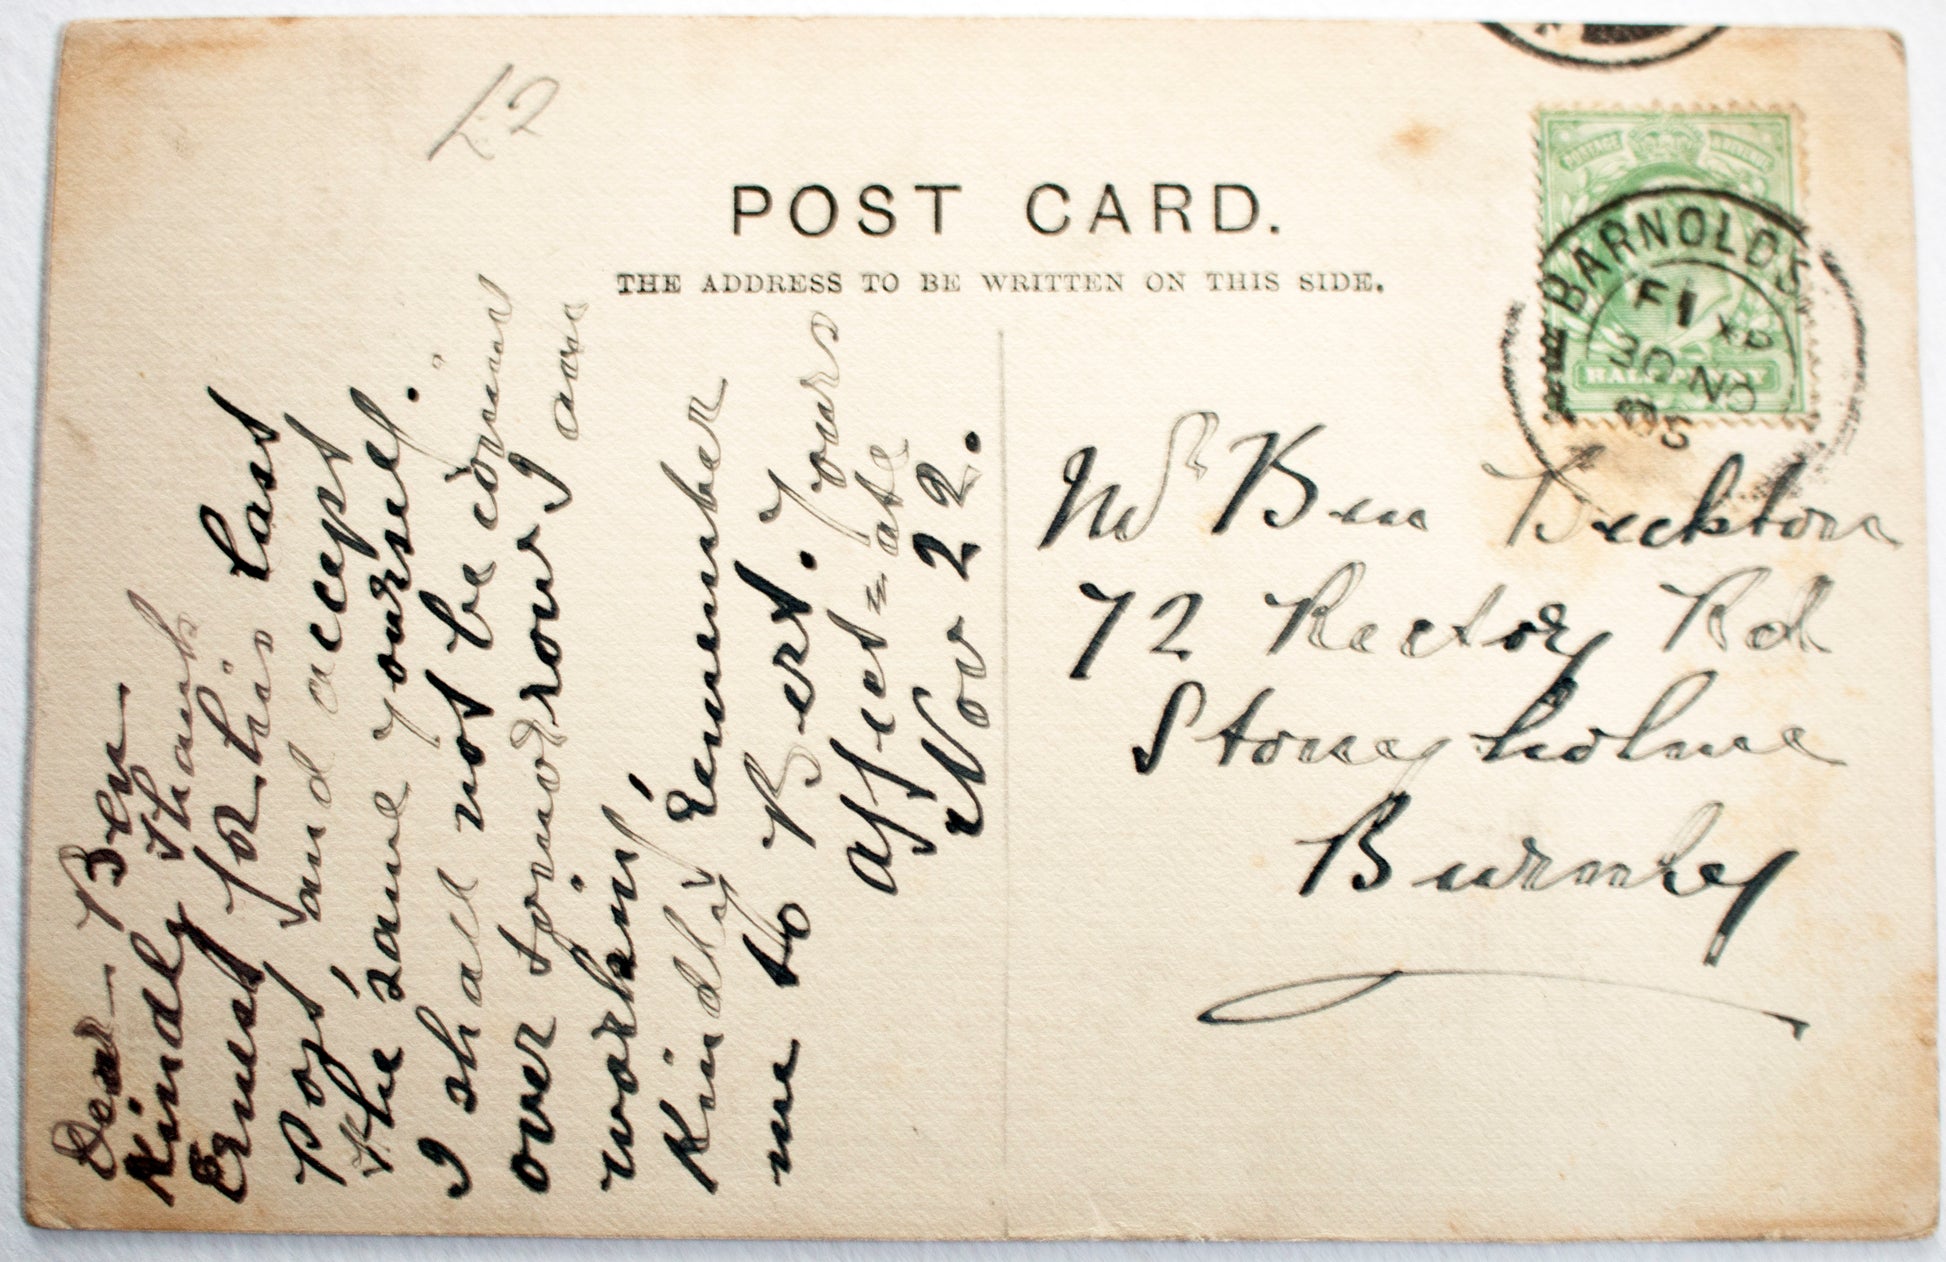 £2
POST CARD.
THE ADDRESS TO BE WRITTEN ON THIS SIDE.
POSTAGE REVENUE
HALF PENNY
BARNOLDS
F 1
30 NO
05
Dear Ben
Kindly thank
Ernest for his last
Post and accept
the same yourself.
I shall not be coming
over tomorrow I am
working
Kindly remember
me to Bert. Yours
affect=ate
Nov 22.
Mr Ben
72 Rectory Rd
Stoneyholme
Burnley